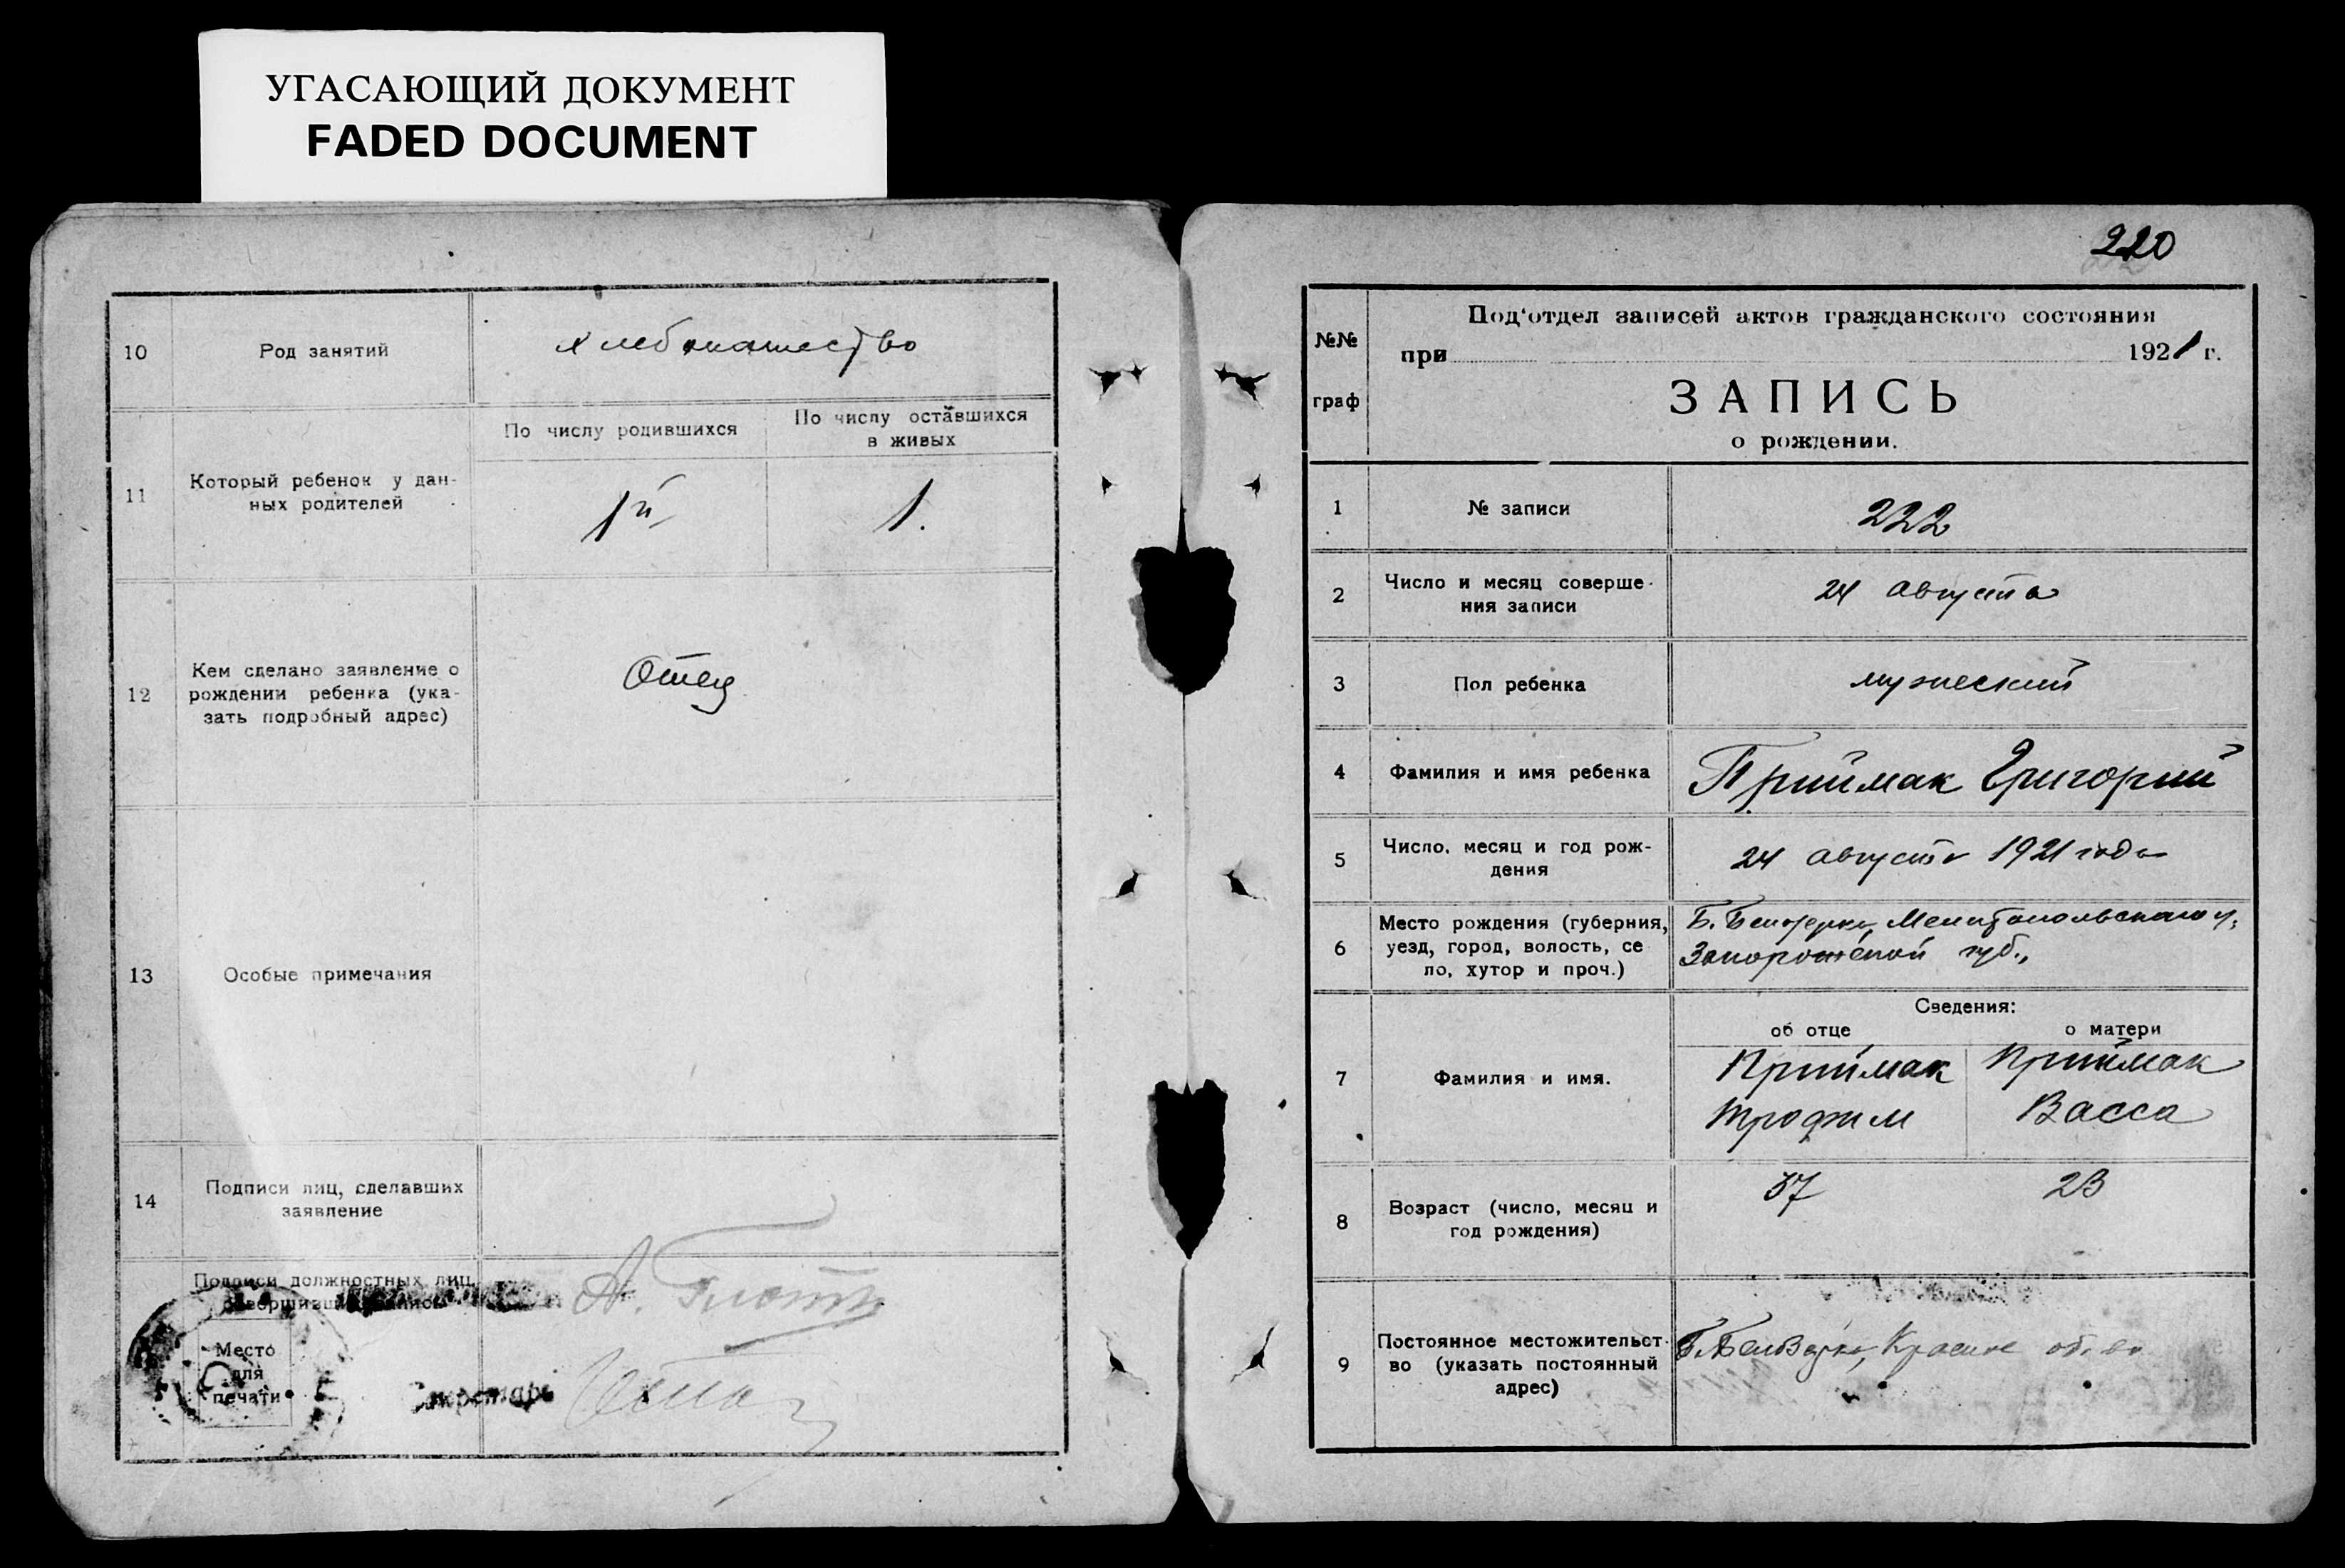 УГАСАЮЩИЙ ДОКУМЕНТ
FADED DOCUMENT
10
Род занятий
хлебопашество
11
Который ребенок у дан-
ных родителей
По числу родившихся
По числу оставшихся
в живых
1й
1.
12
Кем сделано заявление о
рождении ребенка (ука-
зать подробный адрес)
Отец
13
Особые примечания
14
Подписи лиц, сделавших
заявление
Подписи должностных лиц,
совершивших запись
А.
Место
для
печати
Секретарь
220
№№
граф
Под'отдел записей актов гражданского состояния
при 1921 г.
ЗАПИСЬ
о рождении.
1
№ записи
222
2
Число и месяц соверше-
ния записи
24 августа
3
Пол ребенка
мужеский
4
Фамилия и имя ребенка
Приймак Григорий
5
Число, месяц и год рож-
дения
24 августа 1921 года
6
Место рождения (губерния,
уезд, город, волость, се
ло, хутор и проч.)
Б. Белозерка, Мелитопольского у.
Запорожской губ.,
Сведения:
об отце
о матери
7
Фамилия и имя.
Приймак
Трофим
Приймак
Васса
8
Возраст (число, месяц и
год рождения)
37
23
9
Постоянное местожительст-
во (указать постоянный
адрес)
Б. Белозерка,